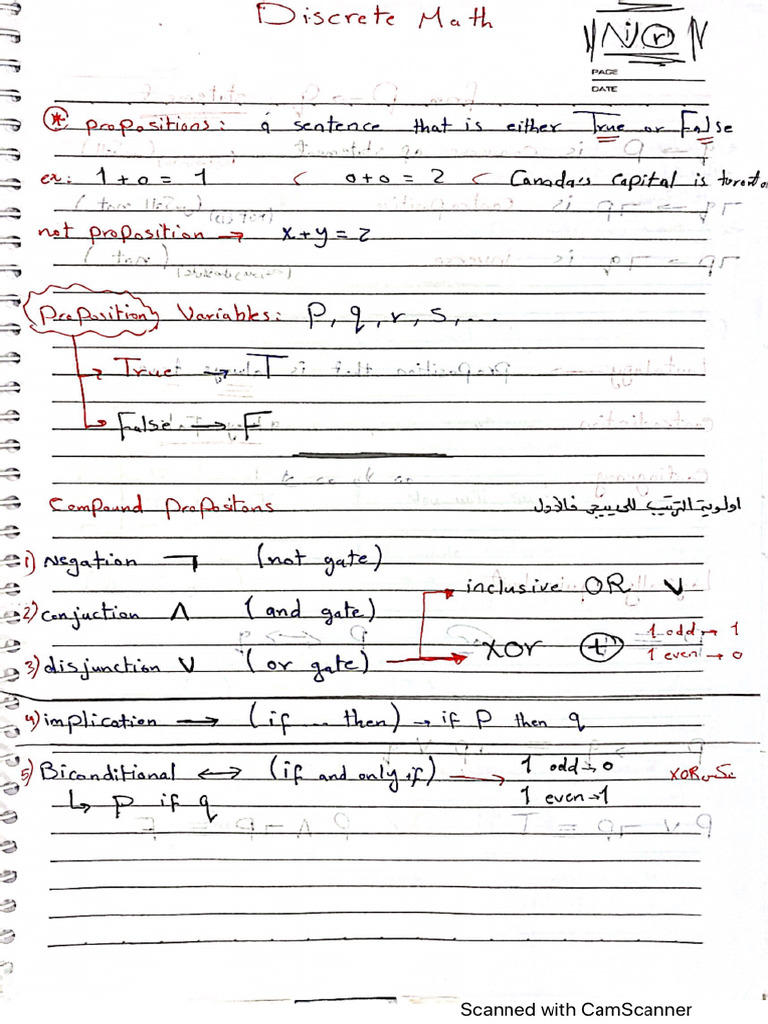 Discrete Math
PAGE
DATE
* propositions: a sentence that is either True or False
ex: 1 + 0 = 1 < 0 + 0 = 2 < Canada's Capital is toronto
not proposition → x + y = 2
Proposition Variables: P, q, r, s, ...
True → T
False → F
Compound Propositons
1) Negation ¬ (not gate)
inclusive OR ∨
2) conjuction ∧ (and gate)
XOr ⊕ 1 odd → 1
3) disjunction ∨ (or gate) 1 even → 0
4) implication → (if ... then) → if P then q
5) Biconditional ↔ (if and only if) → 1 odd → 0
↳ P if q 1 even → 1
Scanned with CamScanner